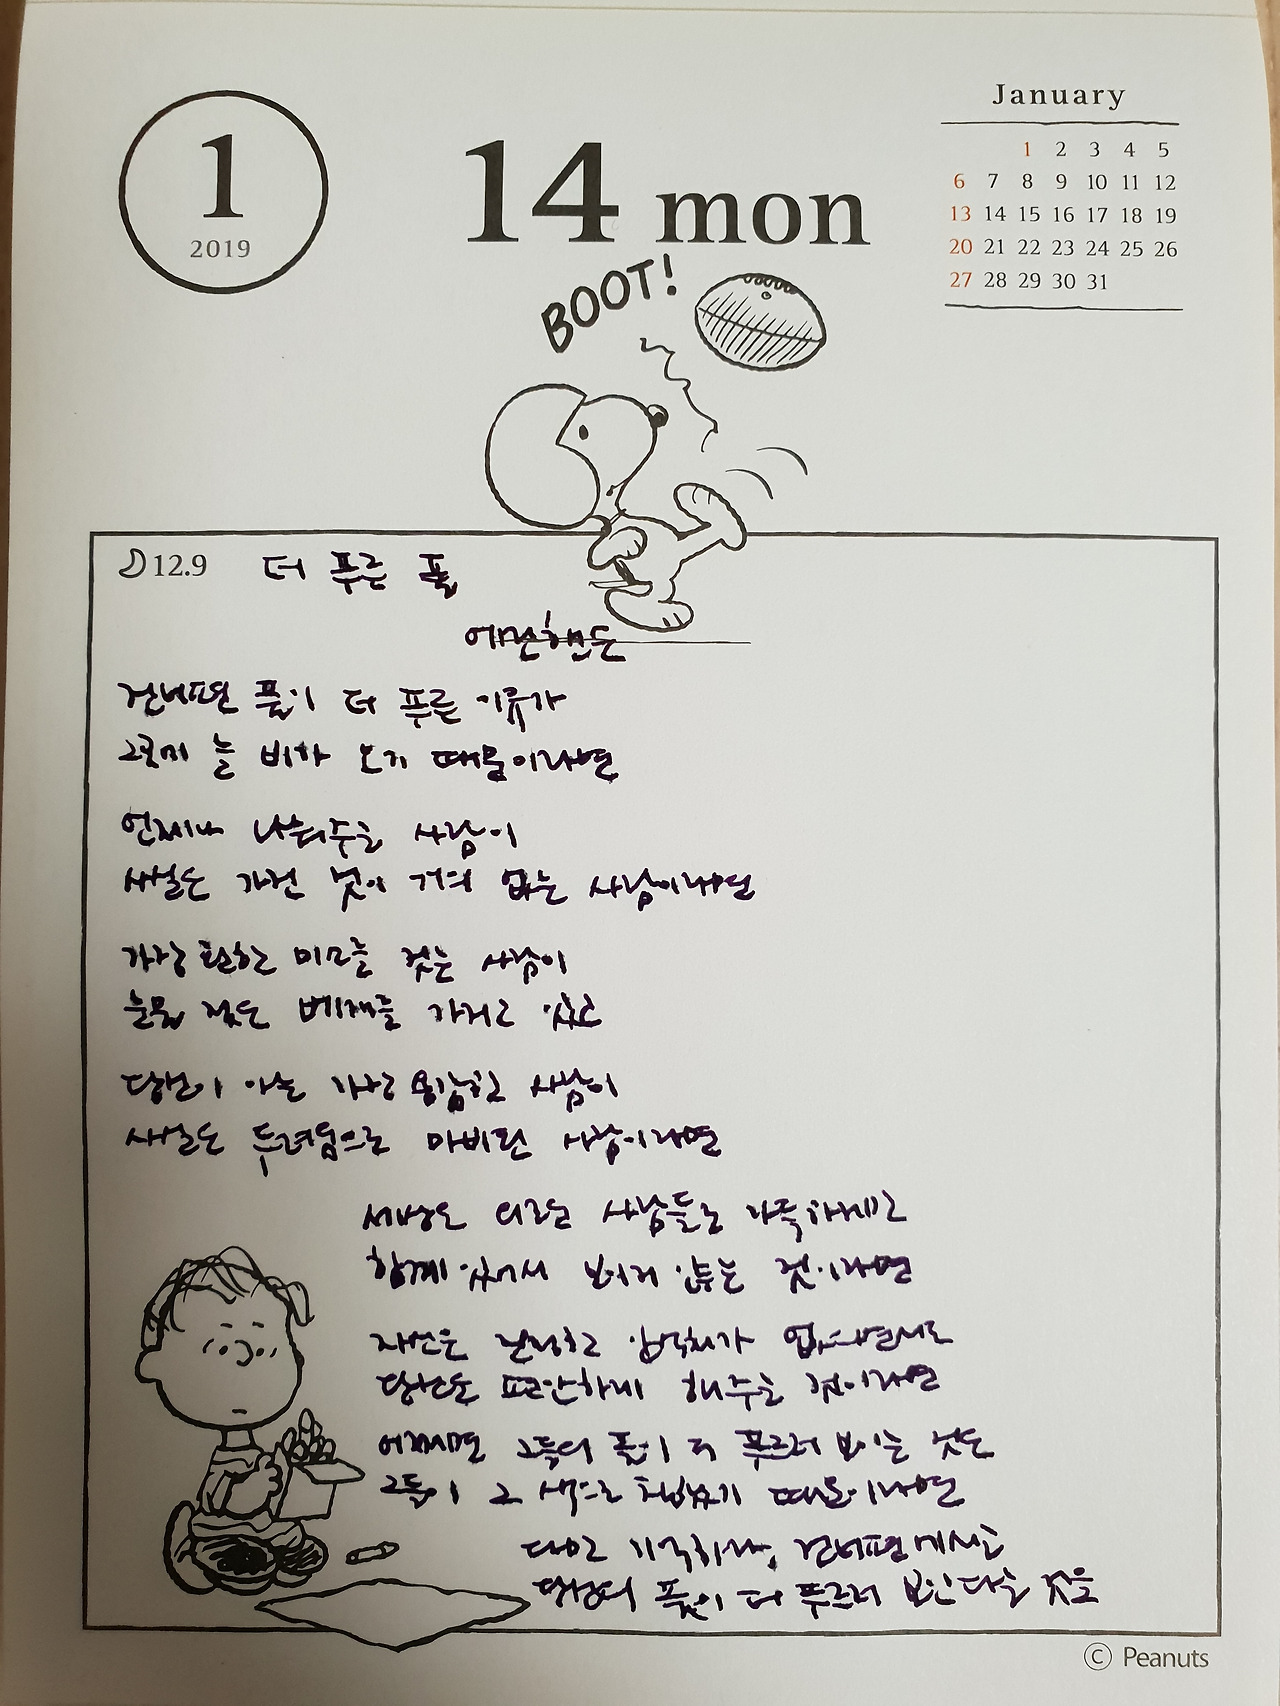 1
2019
14 mon
January
1 2 3 4 5
6 7 8 9 10 11 12
13 14 15 16 17 18 19
20 21 22 23 24 25 26
27 28 29 30 31
BOOT!
12.9 더 푸른 풀
에린핸슨
건너편 풀이 더 푸른 이유가
그곳에 늘 비가 오기 때문이라면
언제나 나눠주는 사람이
사실은 가진 것이 거의 없는 사람이라면
가장 환한 미소를 짓는 사람이
눈물 젖은 베개를 가지고 있고
당신이 아는 가장 용감한 사람이
사실은 두려움으로 마비된 사람이라면
세상은 외로운 사람들로 가득하지만
함께 있어서 보이지 않는 것이라면
자신은 진정한 안식처가 없으면서도
당신은 편안하게 해주는 것이라면
어쩌면 그들의 풀이 더 푸르러 보이는 것은
그들이 그 색으로 칠했기 때문이라면
다만 기억하라, 건너편에서는
당신의 풀이 더 푸르러 보인다는 것을
© Peanuts